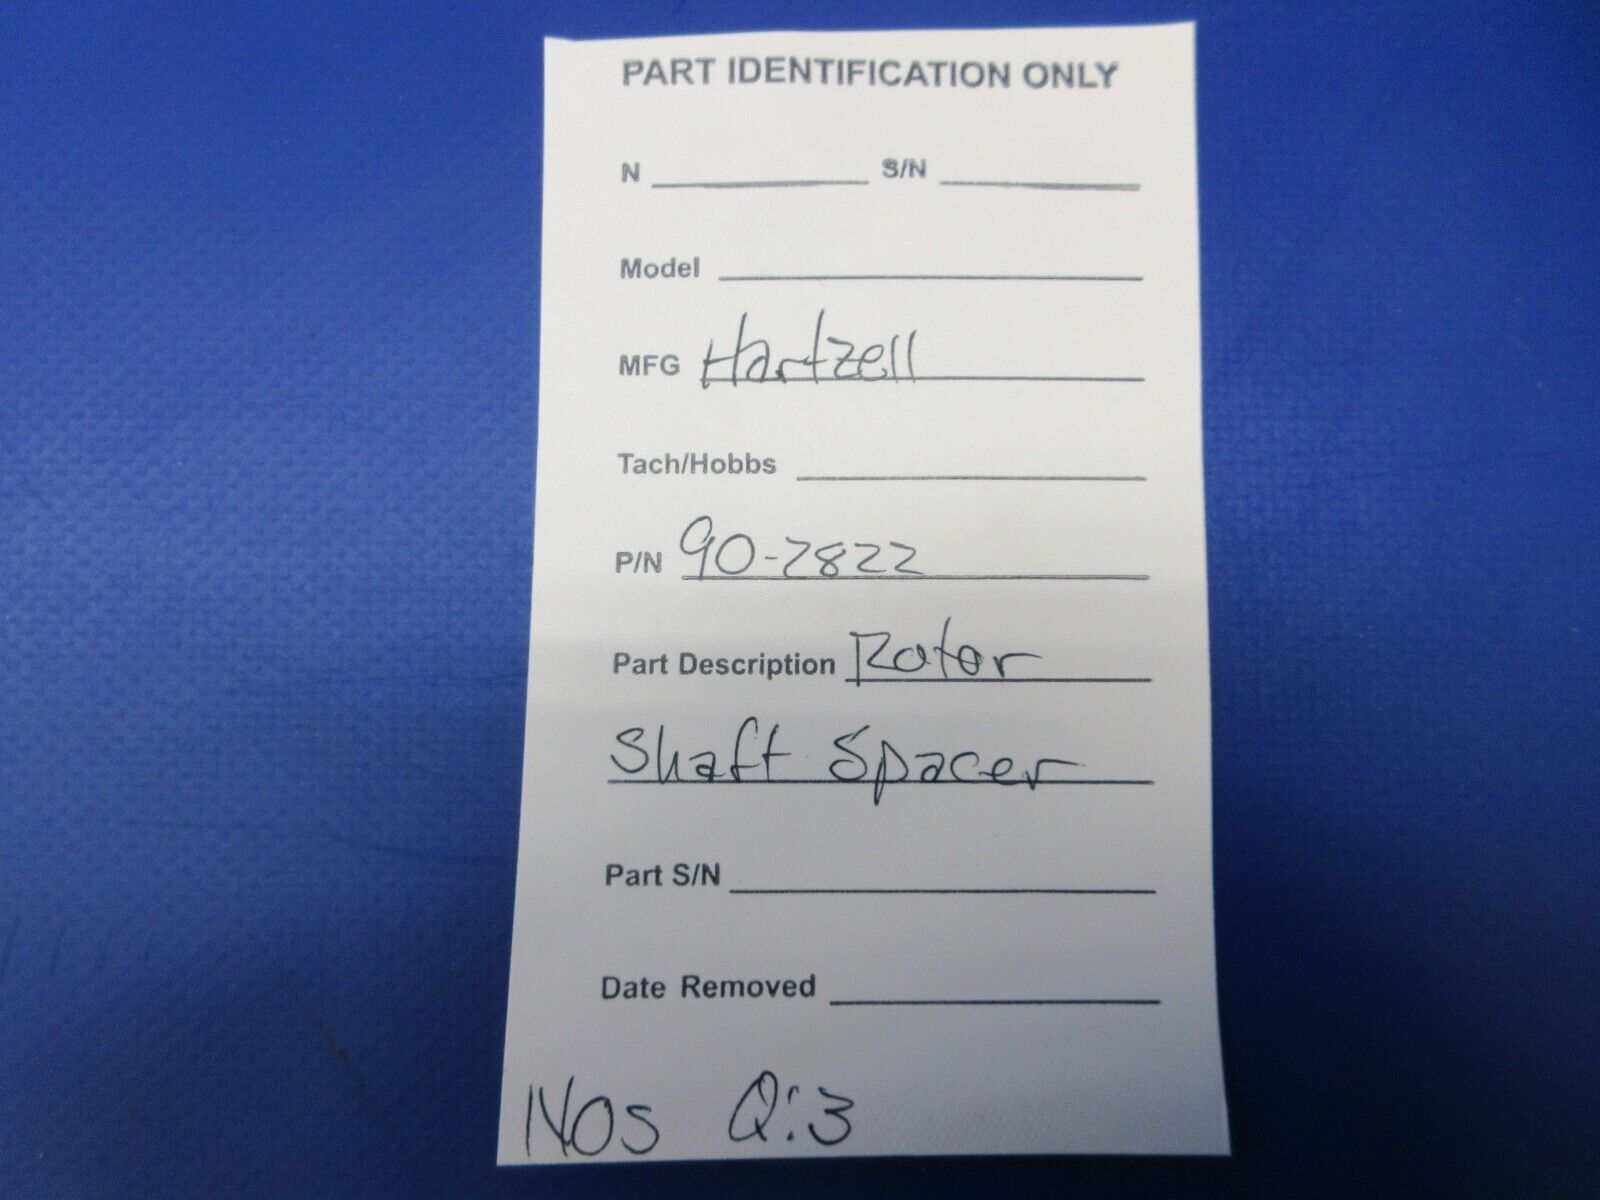 PART IDENTIFICATION ONLY
N S/N
Model
MFG Hartzell
Tach/Hobbs
P/N 90-2822
Part Description Rotor
Shaft Spacer
Part S/N
Date Removed
NOS Q:3